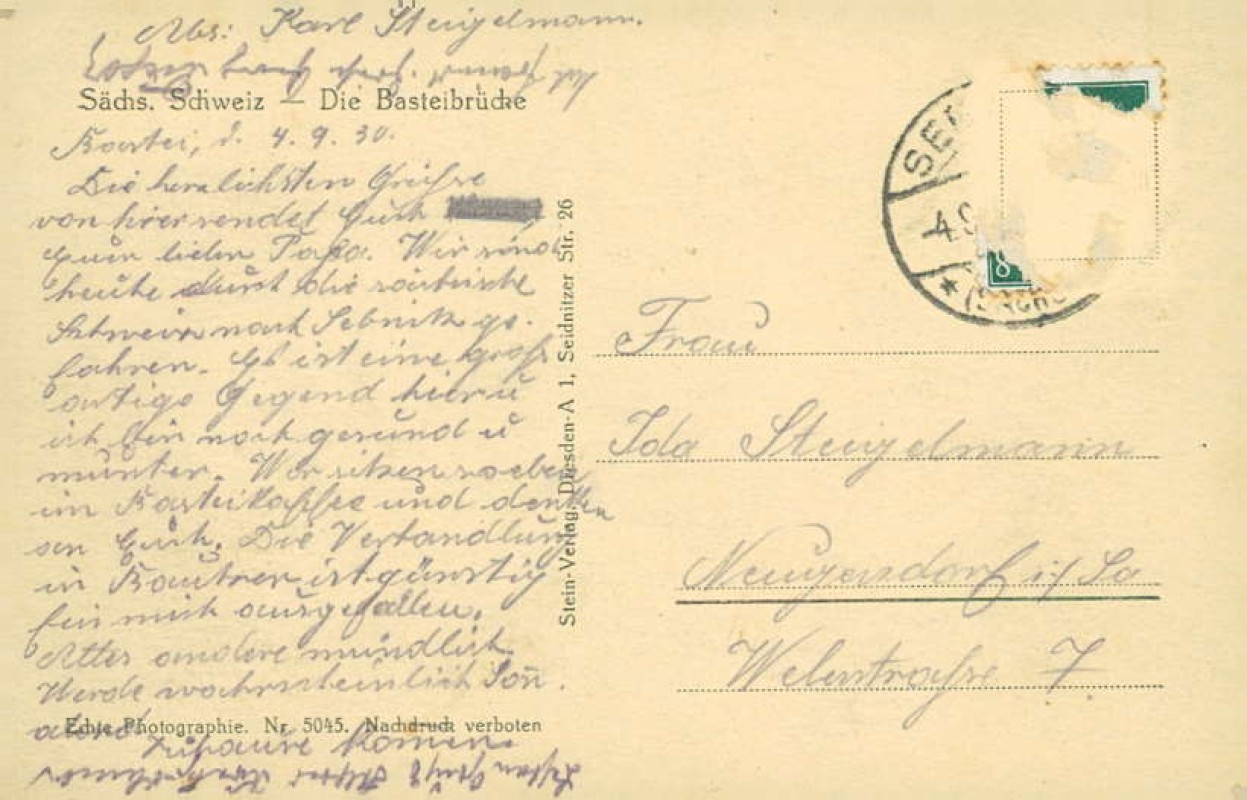 Abs: Karl Steigelmann.
Sächs. Schweiz — Die Basteibrücke
Bastei, d. 4. 9. 30.
Die herzlichsten Grüsse
von hier sendet Euch
Euer lieber Papa. Wir sind
heute durch die sächsische
Schweiz nach Sebnitz ge-
fahren. Es ist eine groß
artige Gegend hier u
ich bin noch gesund u
munter. Wir sitzen soeben
im Basteikaffee und denken
an Euch. Die Verhandlung
in Bautzen ist günstig
für mich ausgefallen.
Alles andere mündlich
Werde wahrscheinlich Son.
abend
zuhause komen.
Echte Photographie. Nr. 5045. Nachdruck verboten
Stein-Verlag, Dresden-A 1, Seidnitzer Str. 26
SE
4.9
(SACHS
Frau
Ida Steigelmann
Neugersdorf i/ Sa
Weberstraße 7.